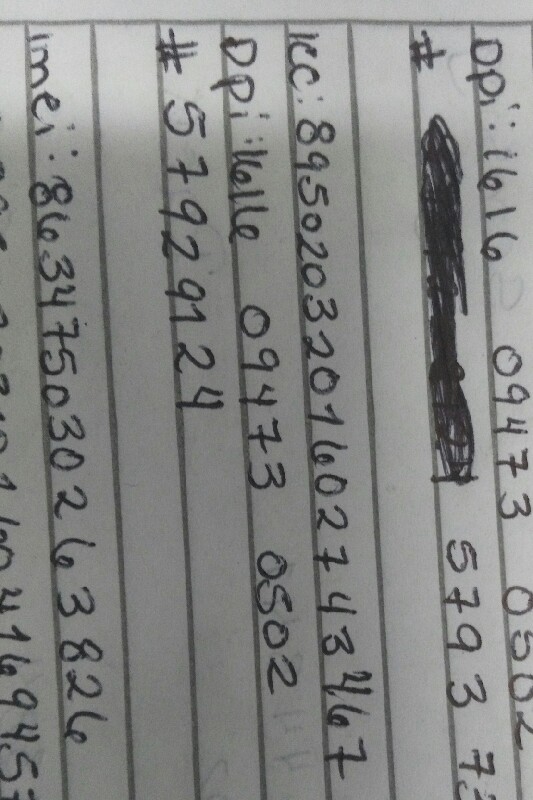 Dpi: 1616 09473 0502
# 5793
icc: 8950203201602743467
Dpi: 1616 09473 0502
# 57929124
imei: 863475030263826